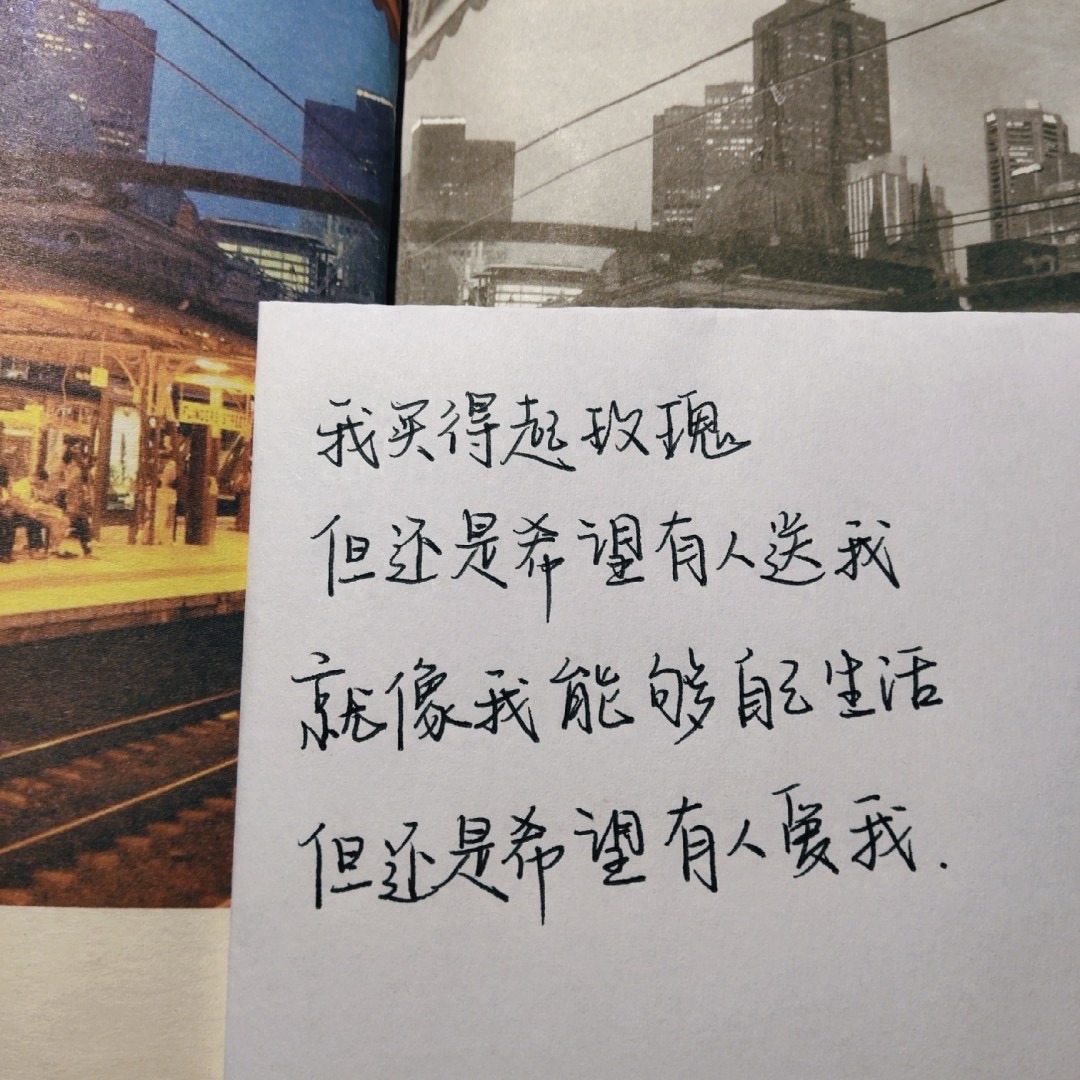 FLINDERS STREET
我买得起玫瑰
但还是希望有人送我
就像我能够自己生活
但还是希望有人爱我.